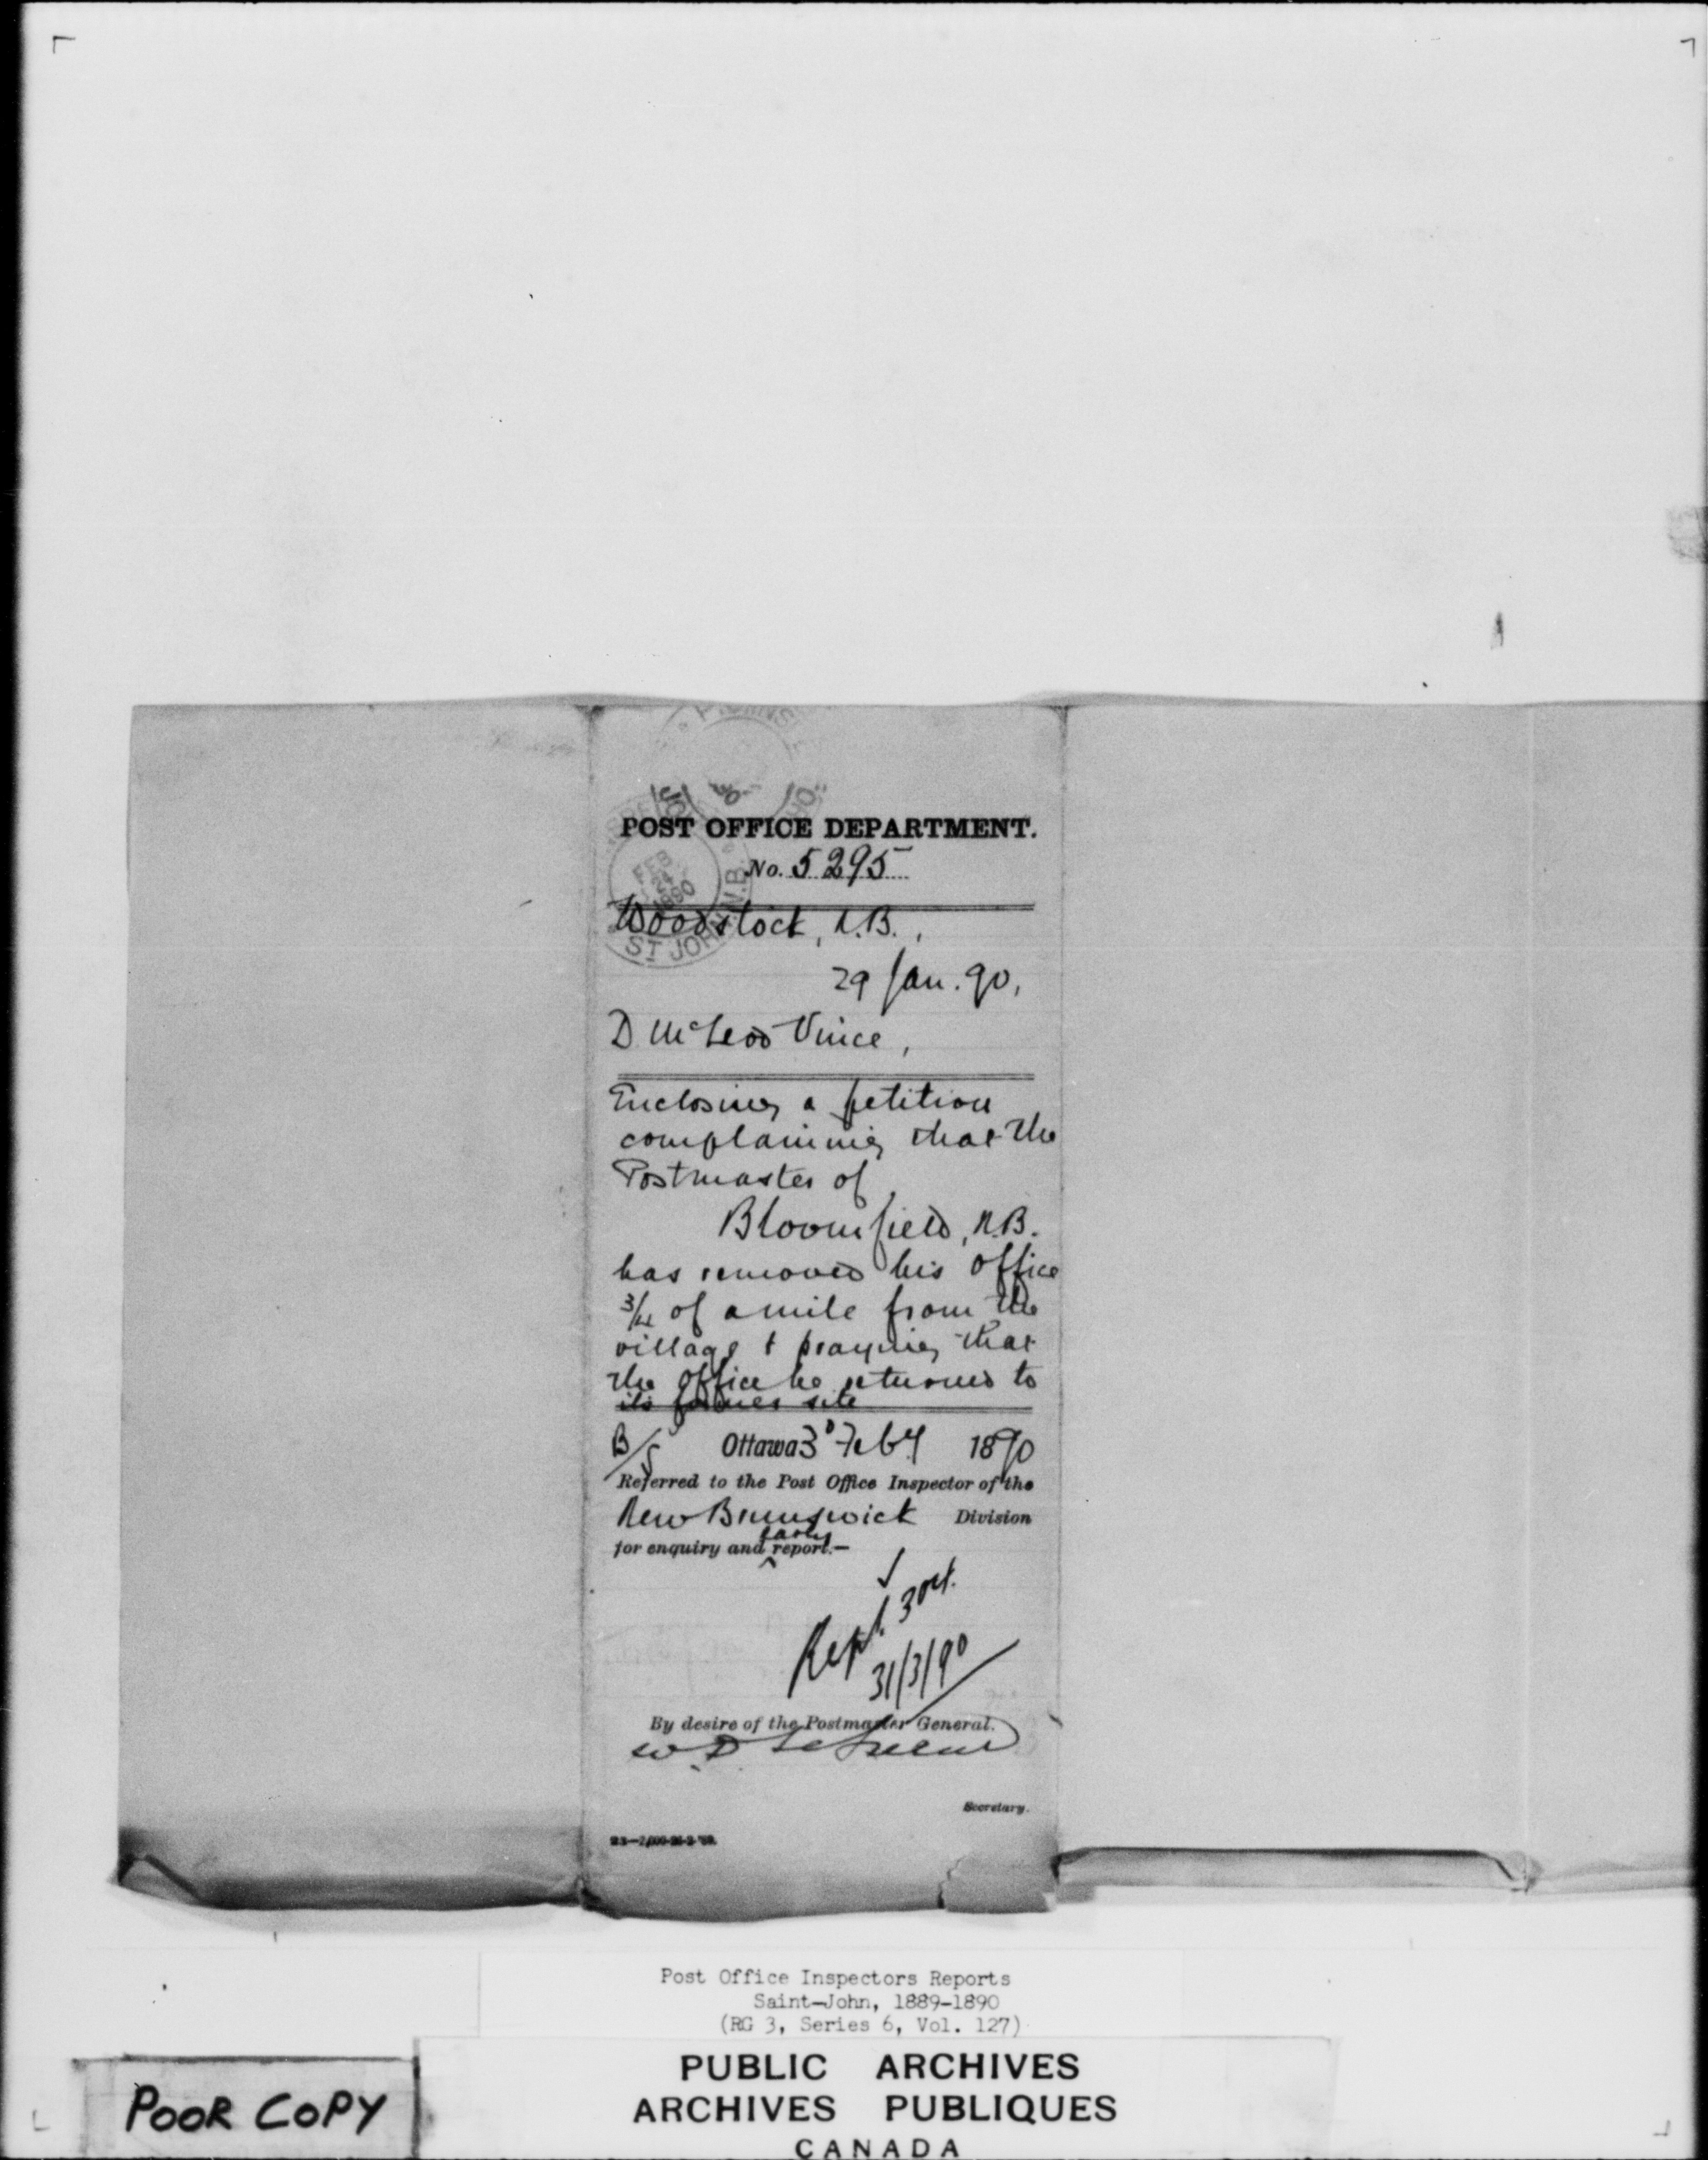 POST OFFICE DEPARTMENT.
No. 5295
FEB
24
1890
ST JOHN N.B.
Woodstock, N.B.,
29 Jan. 90,
D McLeod Vince,
Enclosing a petition
complaining that the
Postmaster of
Bloomfield, N.B.
has removed his office
3/4 of a mile from the
village & praying that
the office be returned to
its former site
Ottawa 3d Feby 1890
Referred to the Post Office Inspector of the
New Brunswick Division
early
for enquiry and ^ report.—
31/3/90
By desire of the Postmaster General.
Secretary.
Post Office Inspectors Reports
Saint-John, 1889-1890
(RG 3, Series 6, Vol. 127)
POOR COPY
PUBLIC ARCHIVES
ARCHIVES PUBLIQUES
CANADA